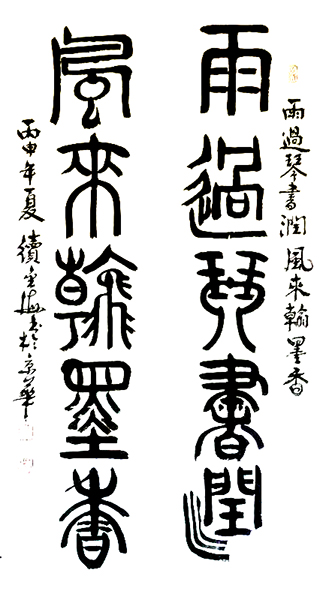 雨過琴書潤風來翰墨香
雨過琴書潤
風來翰墨香
丙申年夏續金海書於京華